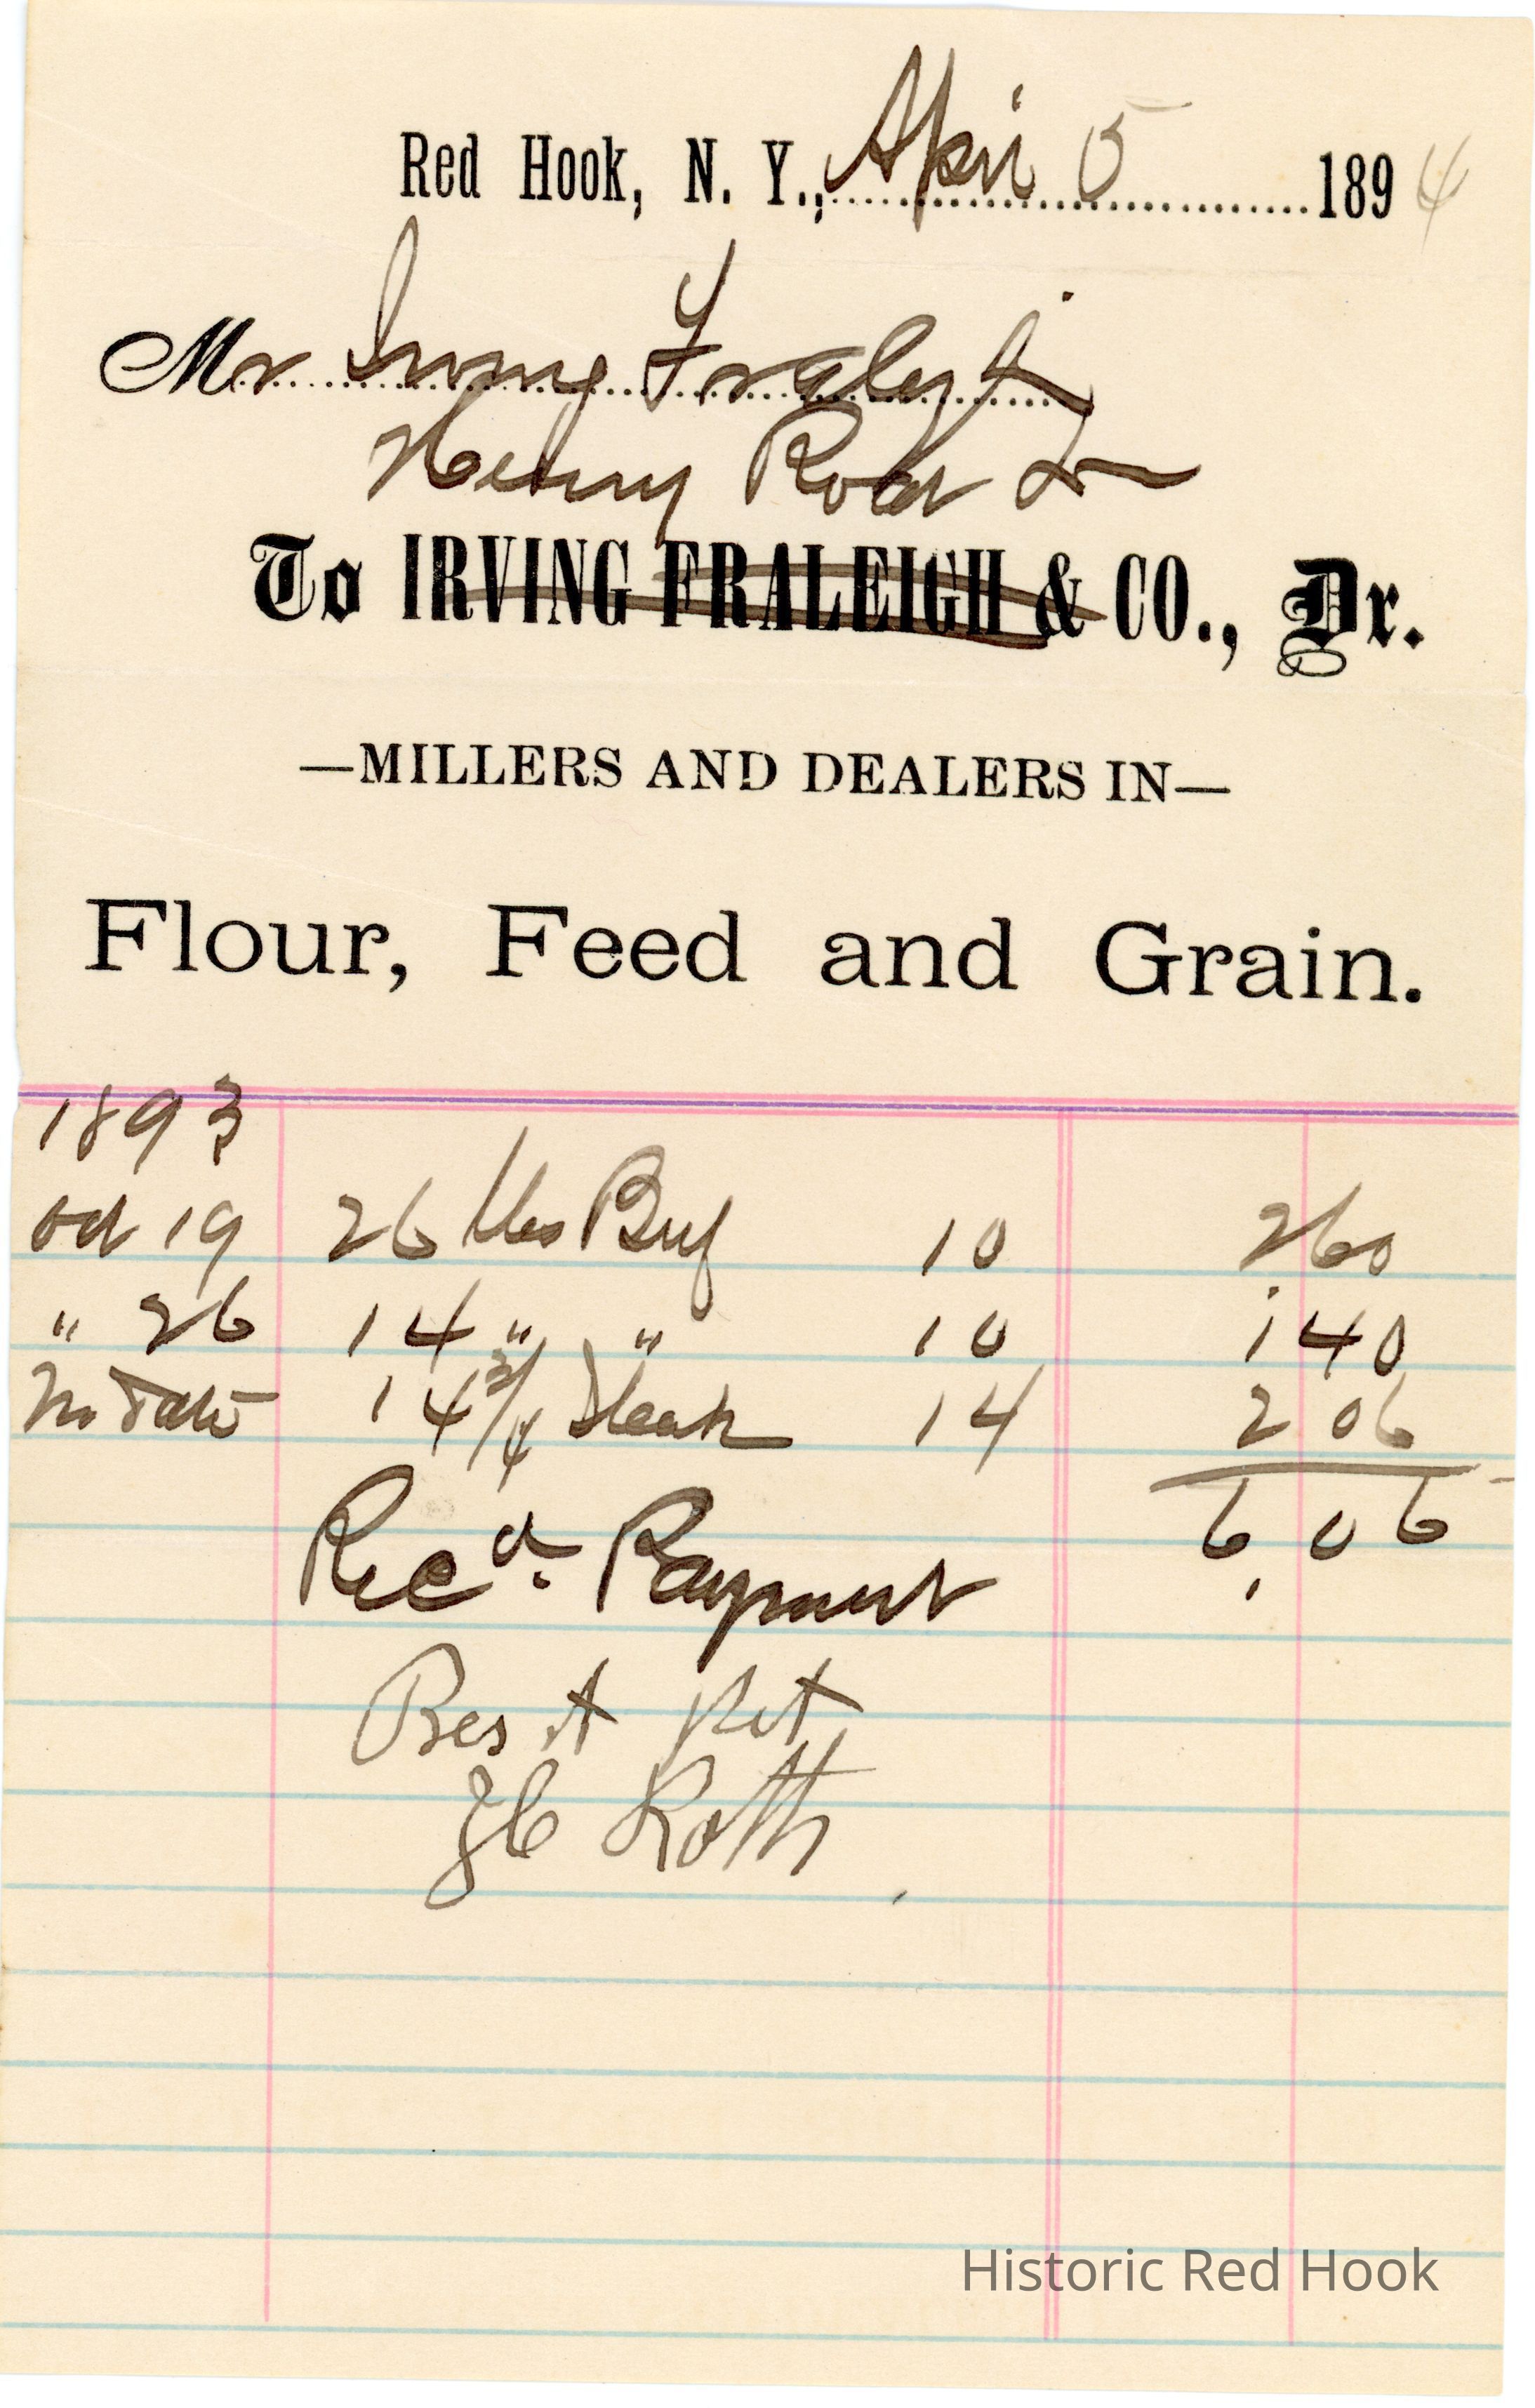 Red Hook, N. Y., April 5 1894
Mr Irving Fraleigh
Henry Roth Dr
To IRVING FRALEIGH & CO., Dr.
—MILLERS AND DEALERS IN—
Flour, Feed and Grain.
1893
Oct 19 26 lbs Beef 10 2 60
" 26 14 " " 10 1 40
No Date 14 3/4 Steak 14 2 06
6 06
Recd. Payment
Roth
Historic Red Hook